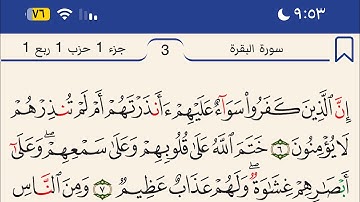 ٩:٥٣ ٧٦
سورة البقرة 3 جزء 1 حزب 1 ربع 1
إِنَّ ٱلَّذِينَ كَفَرُوا۟ سَوَآءٌ عَلَيْهِمْ ءَأَنذَرْتَهُمْ أَمْ لَمْ تُنذِرْهُمْ
لَا يُؤْمِنُونَ ٦ خَتَمَ ٱللَّهُ عَلَىٰ قُلُوبِهِمْ وَعَلَىٰ سَمْعِهِمْ ۖ وَعَلَىٰٓ
أَبْصَٰرِهِمْ غِشَٰوَةٌ ۖ وَلَهُمْ عَذَابٌ عَظِيمٌ ٧ وَمِنَ ٱلنَّاسِ